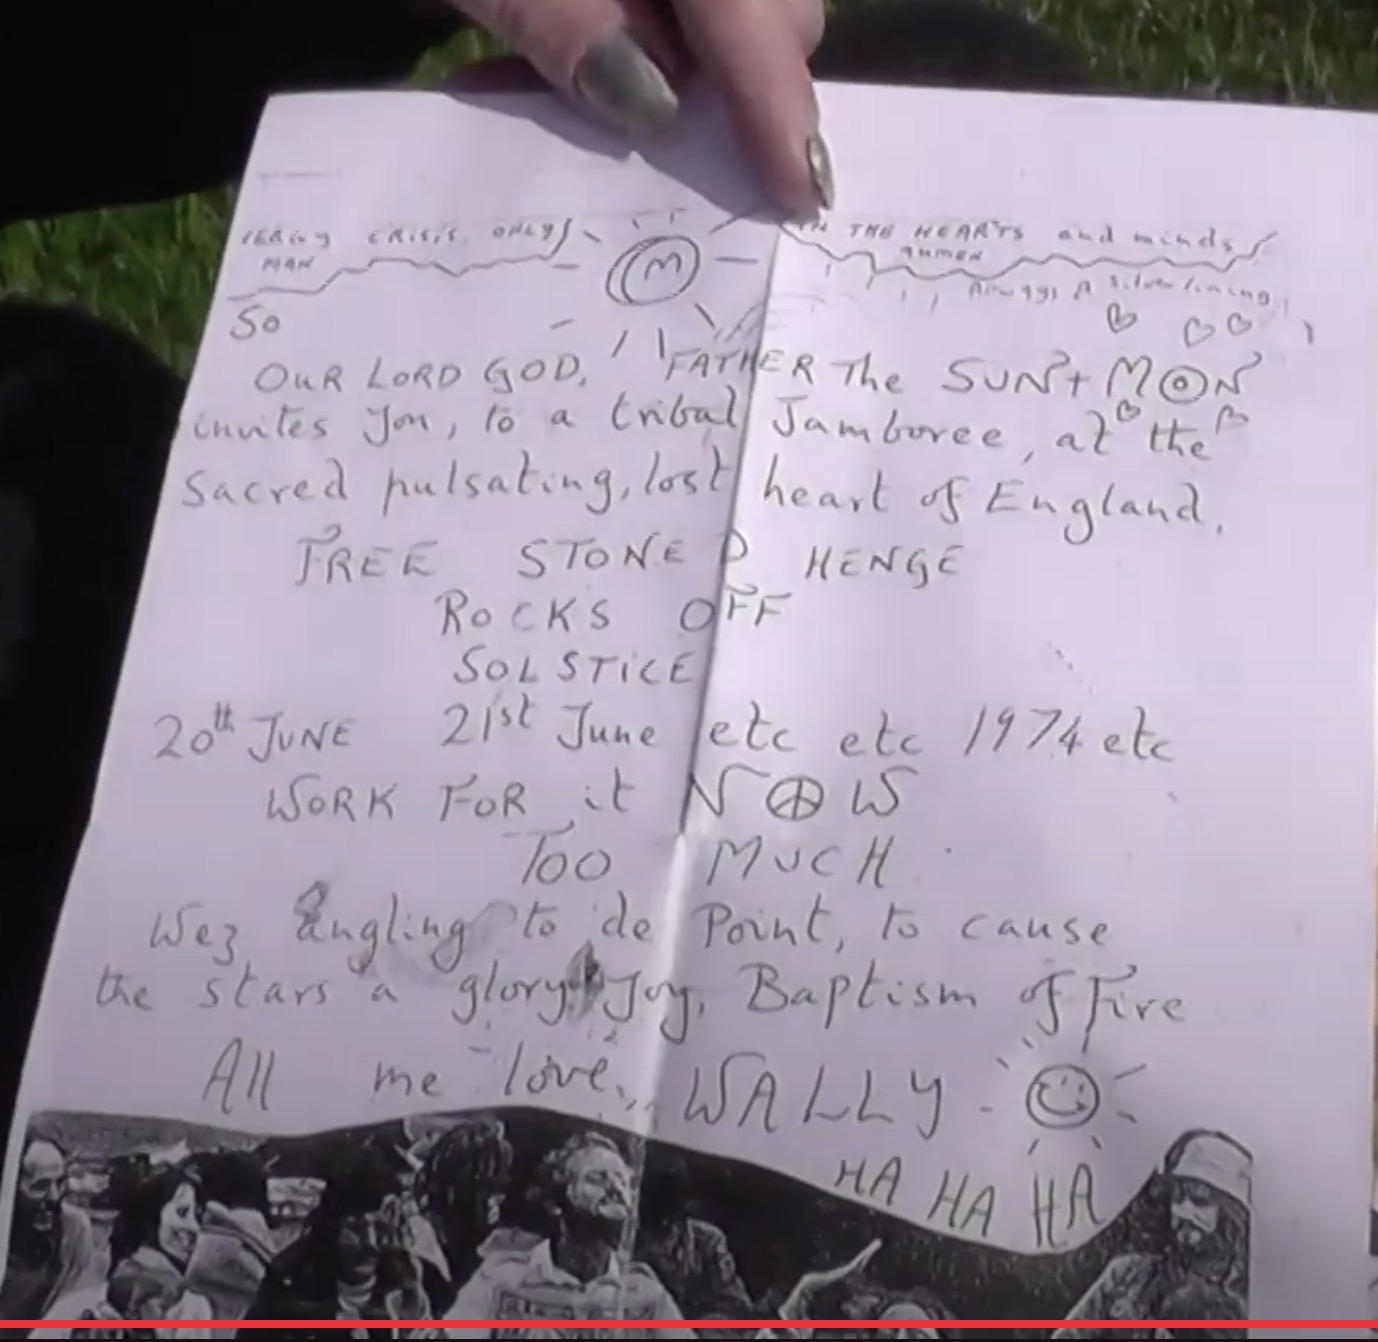 ENERGY CRISIS ONLY
IN THE HEARTS and minds
MAN
Always A silver lining
M
So
OUR LORD GOD, FATHER The SUN + MOON
invites You, to a tribal Jamboree, at the
Sacred pulsating, lost heart of England.
FREE STONED HENGE
ROCKS OFF
SOLSTICE
20th JUNE 21st June etc etc 1974 etc
WORK FOR it NOW
TOO MUCH
Wez angling to de Point, to cause
the stars a glory Joy, Baptism of Fire
All me love,, WALLY.
HA HA HA